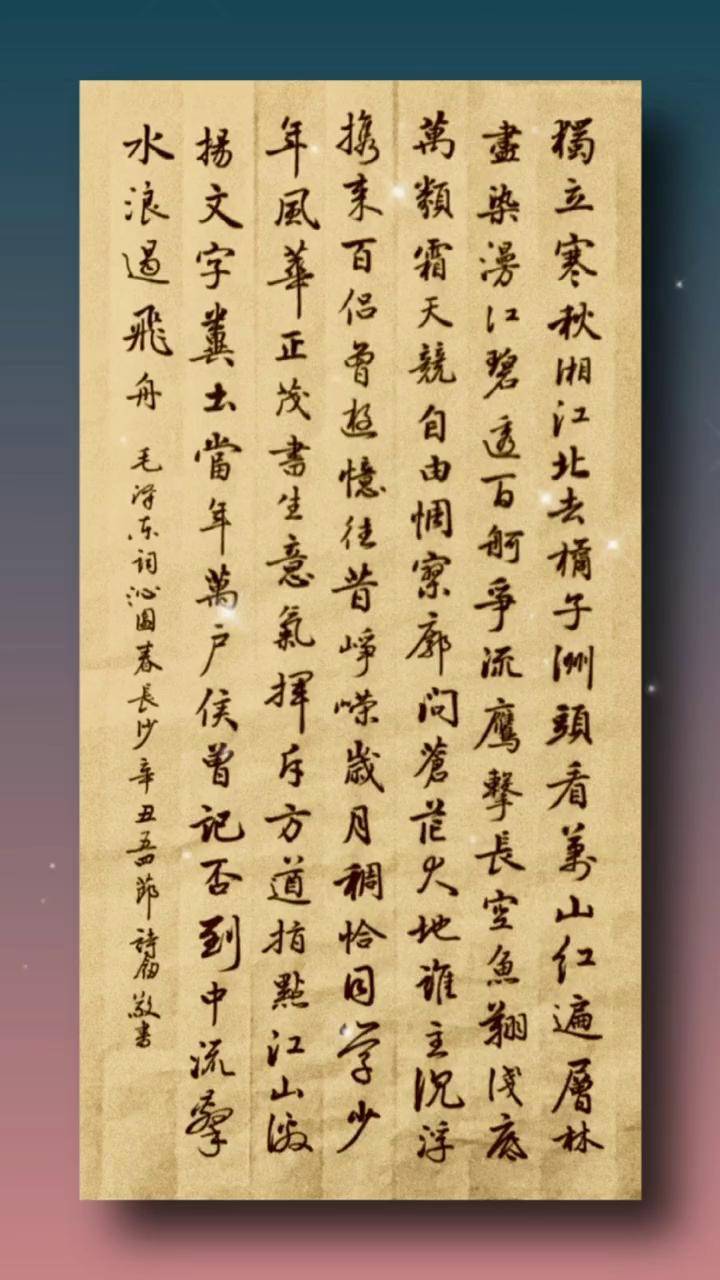 獨立寒秋湘江北去橘子洲頭看萬山紅遍層林
盡染漫江碧透百舸爭流鷹擊長空魚翔淺底
萬類霜天競自由悵寥廓問蒼茫大地誰主沉浮
攜來百侣曾遊憶往昔崢嶸歲月稠恰同學少
年風華正茂書生意氣揮斥方遒指點江山激
揚文字糞土當年萬户侯曾記否到中流擊
水浪遏飛舟
毛泽东词沁園春長沙辛丑五四節詩敬書